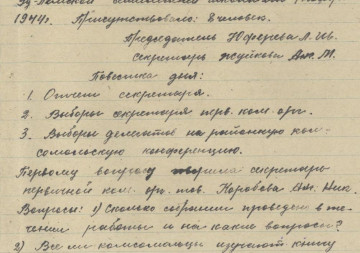 1944г. Присутствовало: 8 человек.
Председатель Юферева Л. Ив.
Секретарь Жуйкова Ан. М.
Повестка дня:
1. Отчет секретаря.
2. Выборы секретаря перв. ком. орг.
3. Выборы делегатов на районную ком-
сомольскую конференцию.
Первому вопросу секретарь
первичной ком. орг. тов. Коробова Ан. Ник.
Вопросы: 1) Сколько собраний проведено в те-
чении работы и на какие вопросы?
2) Все ли комсомольцы изучают книгу